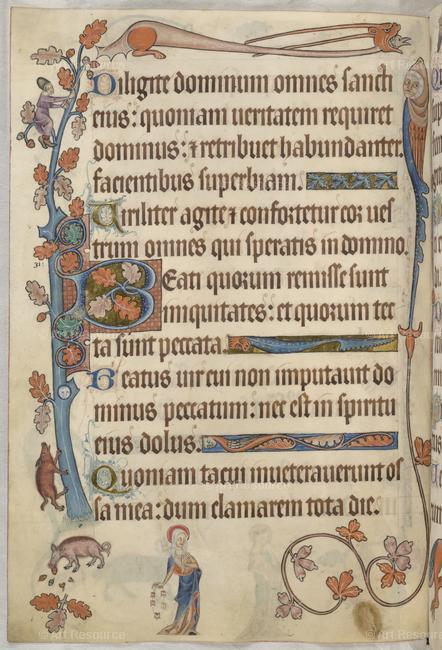 Diligite dominum omnes sancti
eius: quoniam ueritatem requiret
dominus: ⁊ retribuet habundanter.
facientibus superbiam.
Uiriliter agite ⁊ confortetur cor ues
trum omnes qui speratis in domino.
Beati quorum remisse sunt
iniquitates: et quorum tec
ta sunt peccata.
Beatus uir cui non imputauit do
minus peccatum: nec est in spiritu
eius dolus.
Quoniam tacui inueterauerunt os
sa mea: dum clamarem tota die.
© Art Resource
© Art Resource